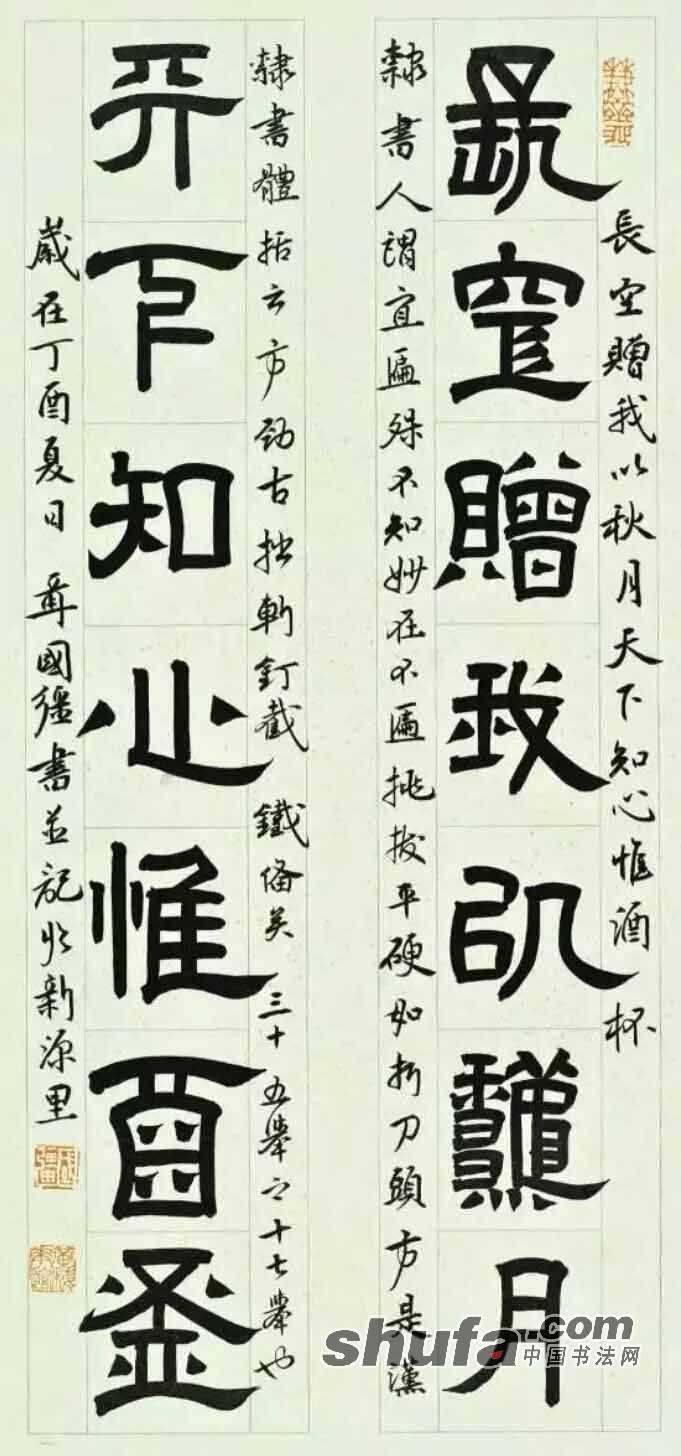 長空贈我以秋月天下知心惟酒杯
長空贈我以秋月
隸書人謂宜匾殊不知妙在不匾挑拔平硬如折刀頭方是漢
隸書體括云方勁古拙斬釘截鐵備矣三十五舉之十七舉也
天下知心惟酉杯
歲在丁酉夏日聶國彊書並記於新源里
shufa.com
中国书法网